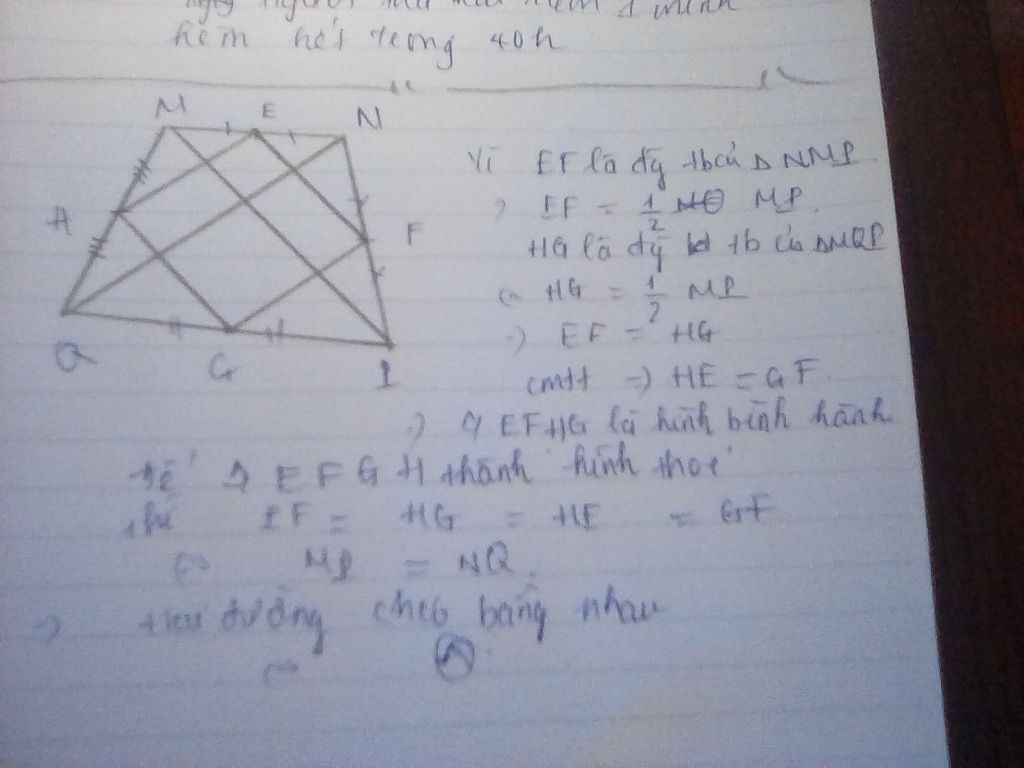 hếm hết trong 40h
M E N
H F
Q G P
Vì EF là đg tb của Δ NMP
=) EF = 1/2 MP.
HG là đg tb của ΔMQP
(=) HG = 1/2 MP
=) EF = HG
cmtt =) HE = GF.
=) EFHG là hình bình hành
để EFGH thành hình thoi
thì EF = HG = HE = GF
(=) MP = NQ
=) hai đường chéo bằng nhau
(=) A